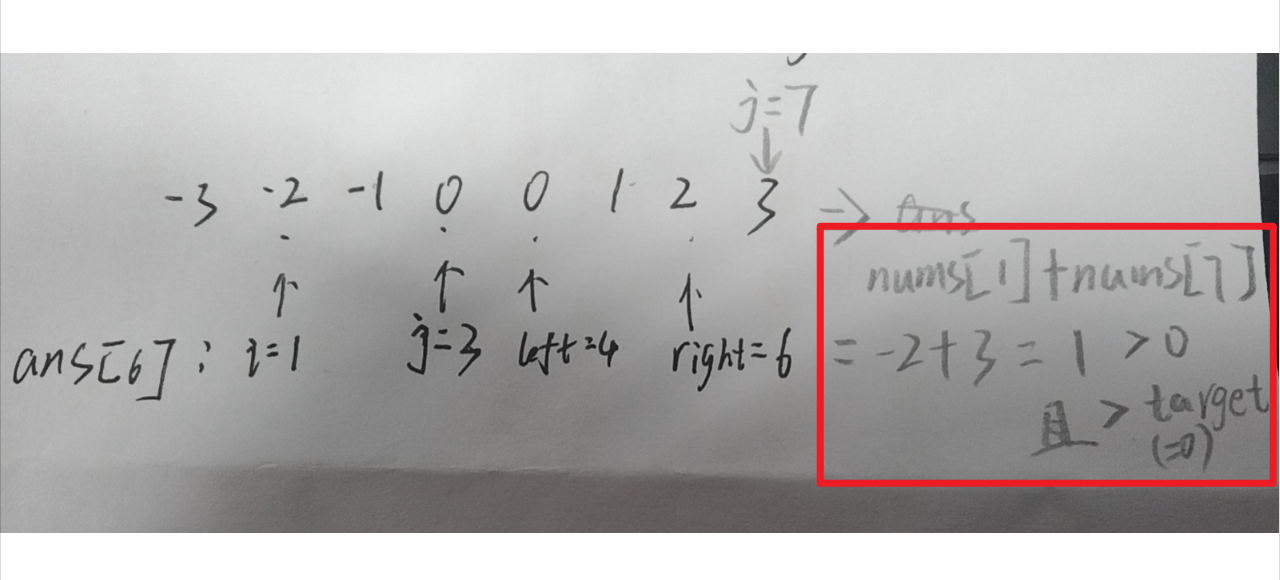 j=7
↓
-3 -2 -1 0 0 1 2 3 → ans
↑ ↑ ↑ ↑
ans[6]: i=1 j=3 left=4 right=6
nums[1]+nums[7]
= -2+3 = 1 >0
且 > target
(=0)